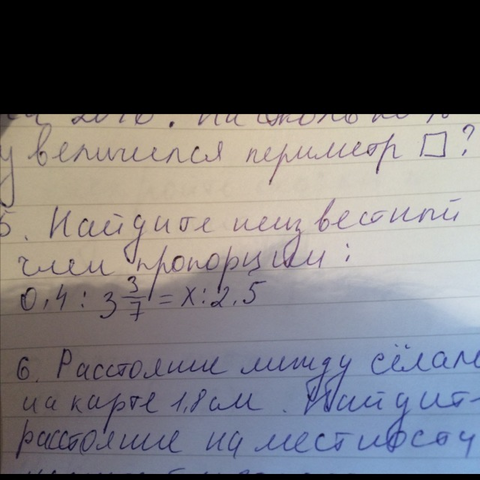 20%. На сколько %
увеличился периметр □?
5. Найдите неизвестный
член пропорции:
0,4 : 3 3/7 = x : 2,5
6. Расстояние между сёлами
на карте 1,8 см. Найдите
расстояние на местности